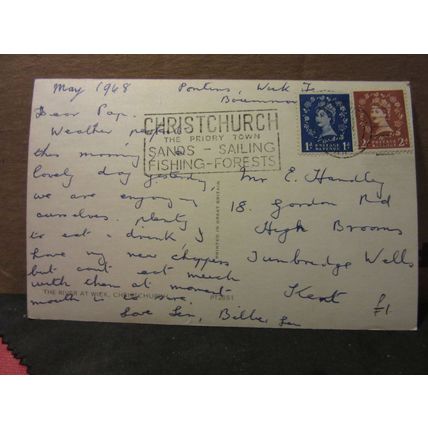 May 1968
Pontins, Wick
Bournmo
Dear Pap.
Weather perfect
this morning, a
lovely day yesterday,
we are enjoying
ourselves. plenty
to eat & drink I
have my new choppers
but cant eat much
with them at moment
mouth is
Love Len, Billie Len
CHRISTCHURCH
THE PRIORY TOWN
SANDS - SAILING
FISHING - FORESTS
1d POSTAGE REVENUE 1d
2d POSTAGE REVENUE 2d
Mr E. Handley
18. Gordon Rd
High Brooms
Tunbridge Wells
Kent
£1
PRINTED IN GREAT BRITAIN
THE RIVER AT WICK, CHRISTCHURCH